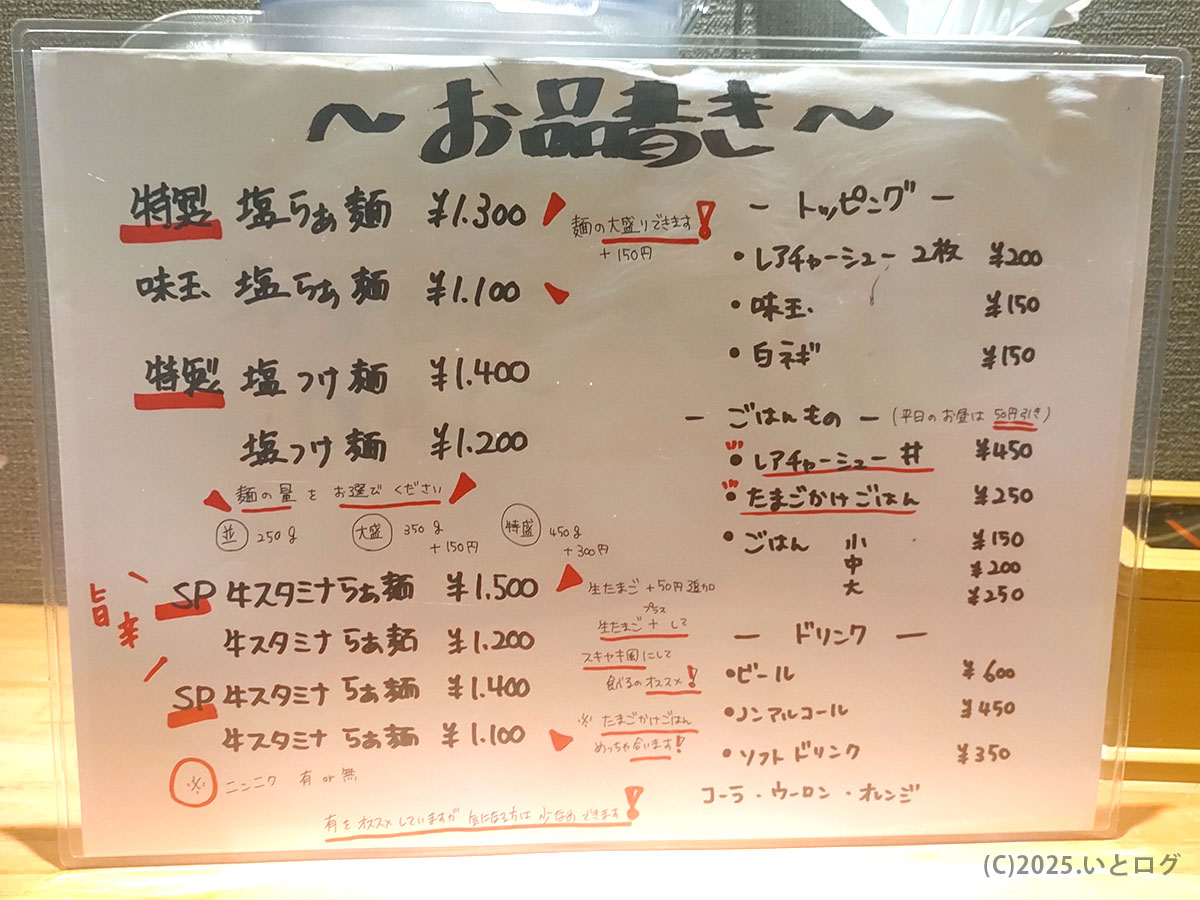 ～お品書き～
特製 塩らぁ麺 ¥1.300
味玉 塩らぁ麺 ¥1.100
麺の大盛りできます!
+150円
特製 塩つけ麺 ¥1.400
塩つけ麺 ¥1.200
麺の量をお選びください
並 250g 大盛 350g +150円 特盛 450g +300円
旨辛
SP 牛スタミナらぁ麺 ¥1.500
牛スタミナらぁ麺 ¥1.200
SP 牛スタミナらぁ麺 ¥1.400
牛スタミナらぁ麺 ¥1.100
生たまご+50円追加
プラス
生たまご+して
スキヤキ風にして
食べるのオススメ!
※たまごかけごはん
めっちゃ合います!
※ ニンニク 有 or 無
有をオススメしていますが 気になる方は 少なめできます!
ー トッピング ー
・レアチャーシュー 2枚 ¥200
・味玉 ¥150
・白ネギ ¥150
ー ごはんもの ー (平日のお昼は50円引き)
・レアチャーシュー丼 ¥450
・たまごかけごはん ¥250
・ごはん 小 ¥150
中 ¥200
大 ¥250
ー ドリンク ー
・ビール ¥600
・ノンアルコール ¥450
・ソフトドリンク ¥350
コーラ・ウーロン・オレンジ
(C)2025.いとログ